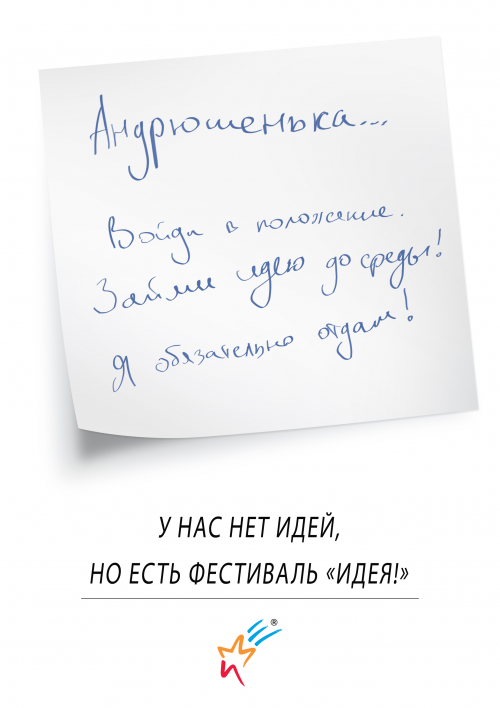 Андрюшенька...
Войди в положение.
Займи идею до среды!
Я обязательно отдам!
У НАС НЕТ ИДЕЙ,
НО ЕСТЬ ФЕСТИВАЛЬ «ИДЕЯ!»
®